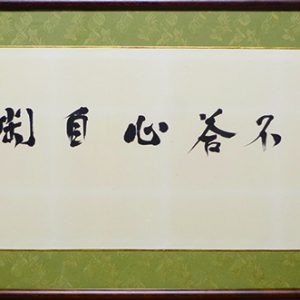 不答心自閑